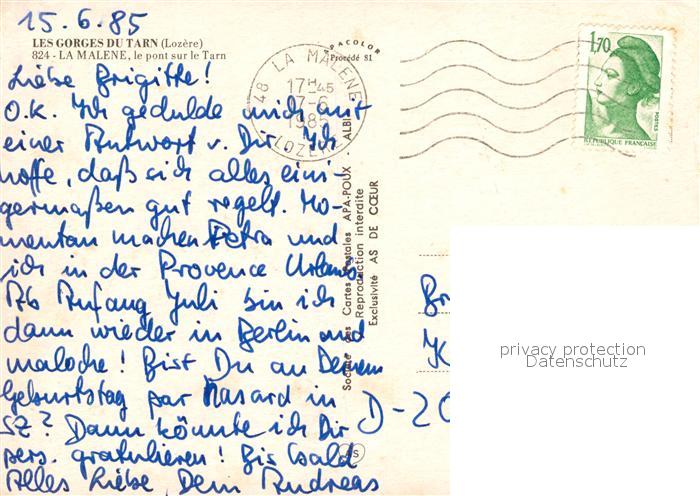 15.6.85
LES GORGES DU TARN (Lozère)
824 - LA MALENE, le pont sur le Tarn
APACOLOR
Procédé 81
48 LA MALENE
17H45
17-6
1985
LOZERE
1,70
POSTES
REPUBLIQUE FRANÇAISE
Liebe Brigitte!
O.K. Ich gedulde mich mit
einer Antwort v. Dir. Ich
hoffe, daß sich alles eini-
germaßen gut regelt. Mo-
mentan machen Petra und
ich in der Provence Urlaub.
Ab Anfang Juli bin ich
dann wieder in Berlin und
maloche! Bist Du an Deinem
Geburtstag par hasard in
SZ? Dann könnte ich Dir
pers. gratulieren! Bis bald
Alles Liebe, Dein Andreas
Société des Cartes Postales APA-POUX - ALBI
Reproduction interdite
Exclusivité AS DE CŒUR
AS
Br
K
D-20
privacy protection
Datenschutz